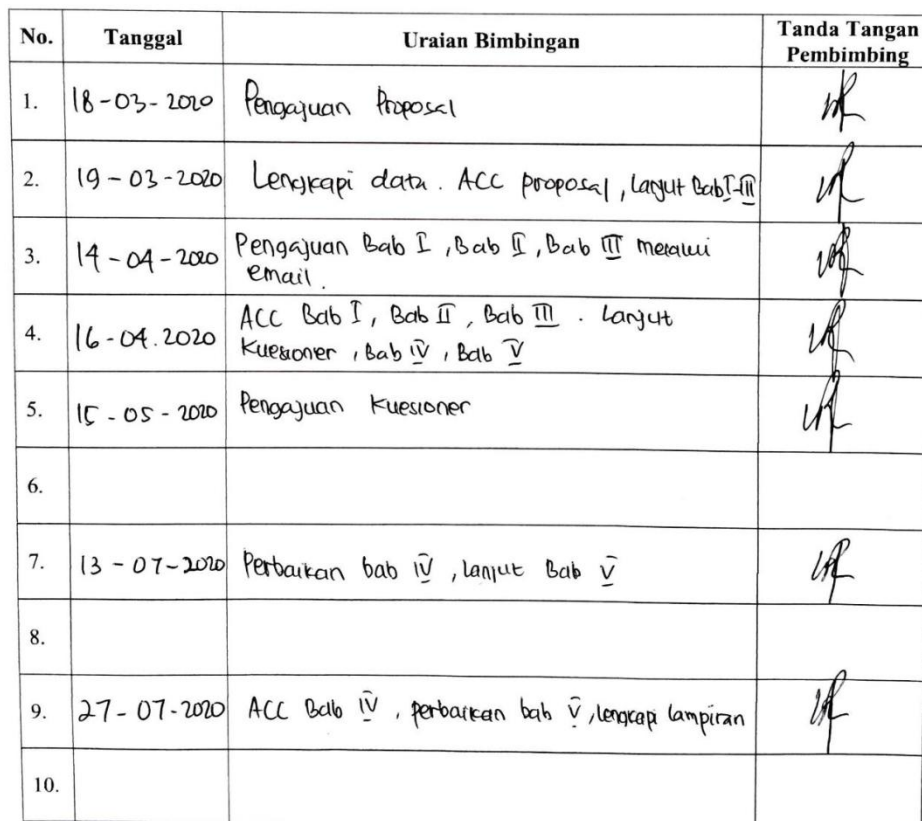 No. Tanggal Uraian Bimbingan Tanda Tangan
Pembimbing
1. 18-03-2020 Pengajuan Proposal
2. 19-03-2020 Lengkapi data. ACC proposal, Lanjut Bab I-III
3. 14-04-2020 Pengajuan Bab I, Bab II, Bab III melalui
email.
4. 16-04.2020 ACC Bab I, Bab II, Bab III. Lanjut
Kuesioner, Bab IV, Bab V
5. 15-05-2020 Pengajuan Kuesioner
6.
7. 13-07-2020 Perbaikan bab IV, Lanjut Bab V
8.
9. 27-07-2020 ACC Bab IV, perbaikan bab V, lengkapi lampiran
10.